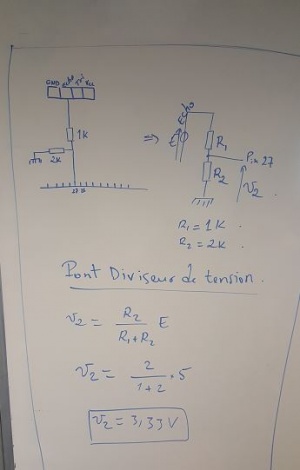 GND Echo Trig Vcc
1K
2K
27
Echo
⇒ E R₁ Pin 27
R₂ V₂
R₁ = 1K
R₂ = 2K.
Pont Diviseur de tension.
V₂ = R₂ / (R₁+R₂) E
V₂ = 2 / (1+2) . 5
V₂ = 3,33V